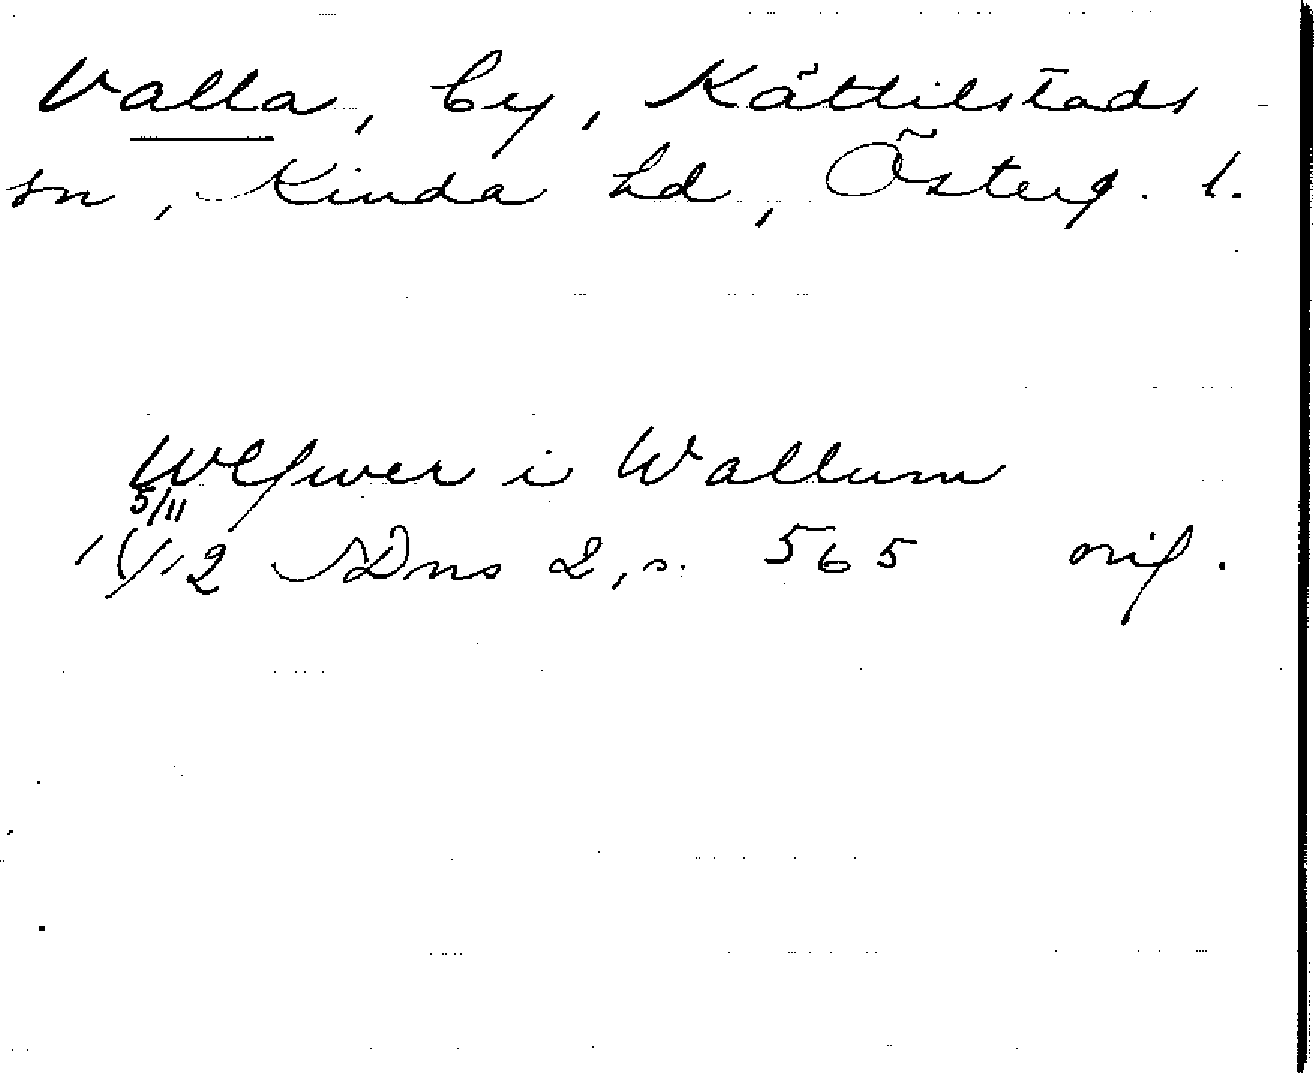 Valla, by, Kättilstads
sn, Kinda hd, Österg. l.
Ulfwer i Wallum
5/11
1412 SDns 2, s. 565 orig.